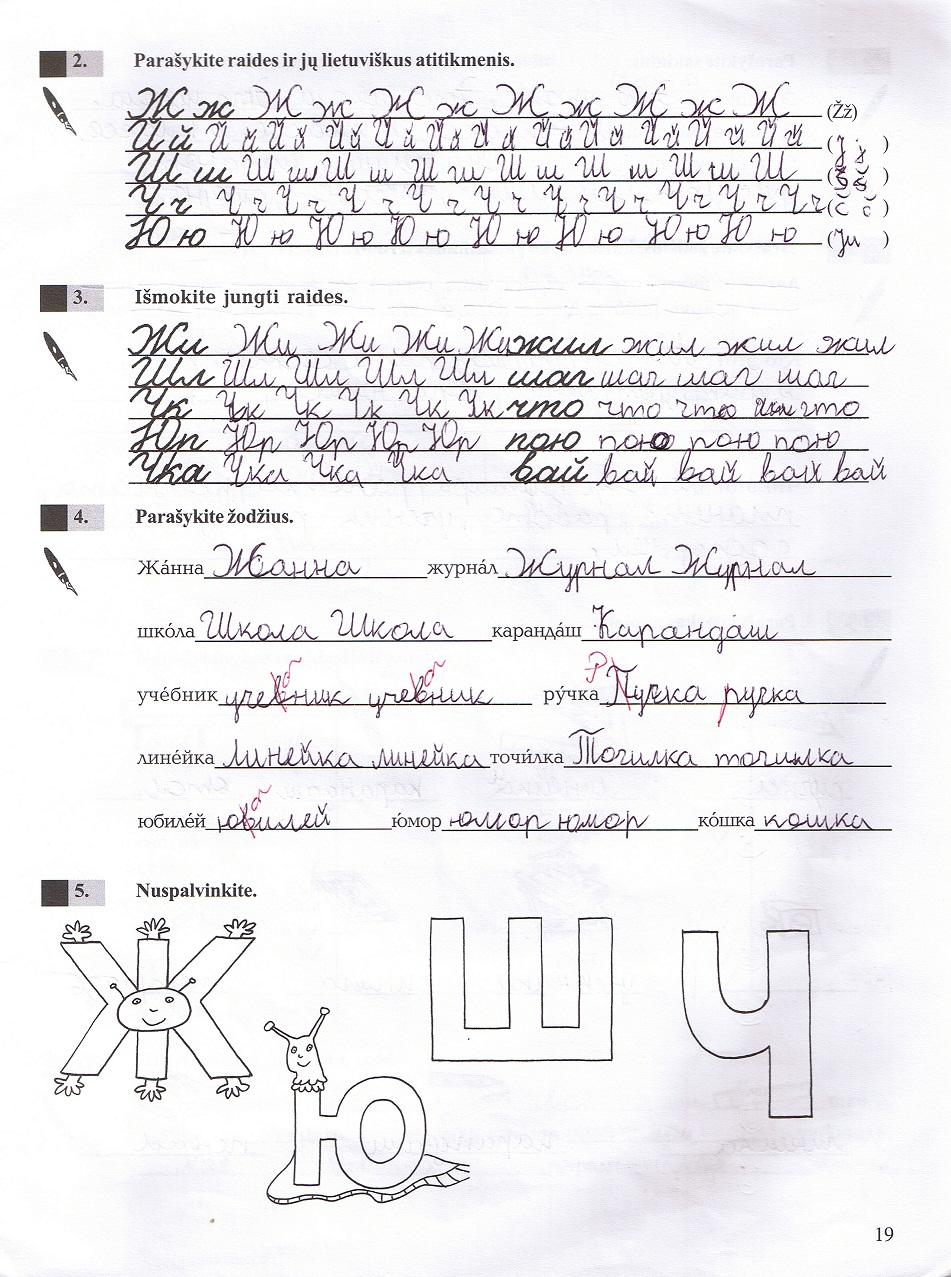 2. Parašykite raides ir jų lietuviškus atitikmenis.
Ж ж Ж ж Ж ж Ж ж Ж ж Ж (Žž)
Й й Й й Й й Й й Й й Й й Й й Й й Й й Й й Й й (J j)
Ш ш Ш ш Ш ш Ш ш Ш ш Ш ш Ш ш Ш (Š š)
Ч ч Ч ч Ч ч Ч ч Ч ч Ч ч Ч ч Ч ч Ч ч Ч ч Ч ч (Č č)
Ю ю Ю ю Ю ю Ю ю Ю ю Ю ю Ю ю Ю ю (Ju)
3. Išmokite jungti raides.
Жи Жи Жи Жи Жи жил жил жил жил
Шл Шл Шл Шл Шл шаг шаг шаг шаг
Чк Чк Чк Чк Чк Чк что что что что
Юп Юр Юр Юр Юр пою пою пою пою
Чка Чка Чка Чка вай вай вай вай вай
4. Parašykite žodžius.
Жа́нна Жанна журна́л Журнал Журнал
шко́ла Школа Школа каранда́ш Карандаш
уче́бник учевник учевник ру́чка Пучка ручка
лине́йка линейка линейка точи́лка Точилка точилка
юбиле́й ювилей ю́мор юмор юмор ко́шка кошка
5. Nuspalvinkite.
Ж Ю Ш Ч
19